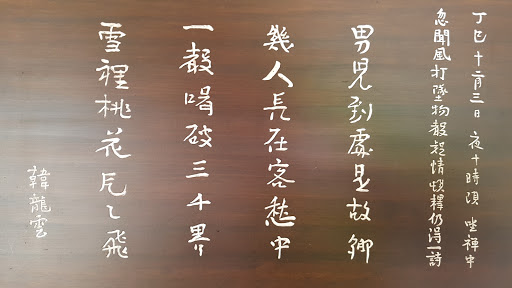 丁巳十二月三日 夜十時頃 坐禪中
忽聞風打墜物聲 疑情頓釋仍得一詩
男兒到處是故鄕
幾人長在客愁中
一聲喝破三千界
雪裡桃花片〻飛
韓龍雲